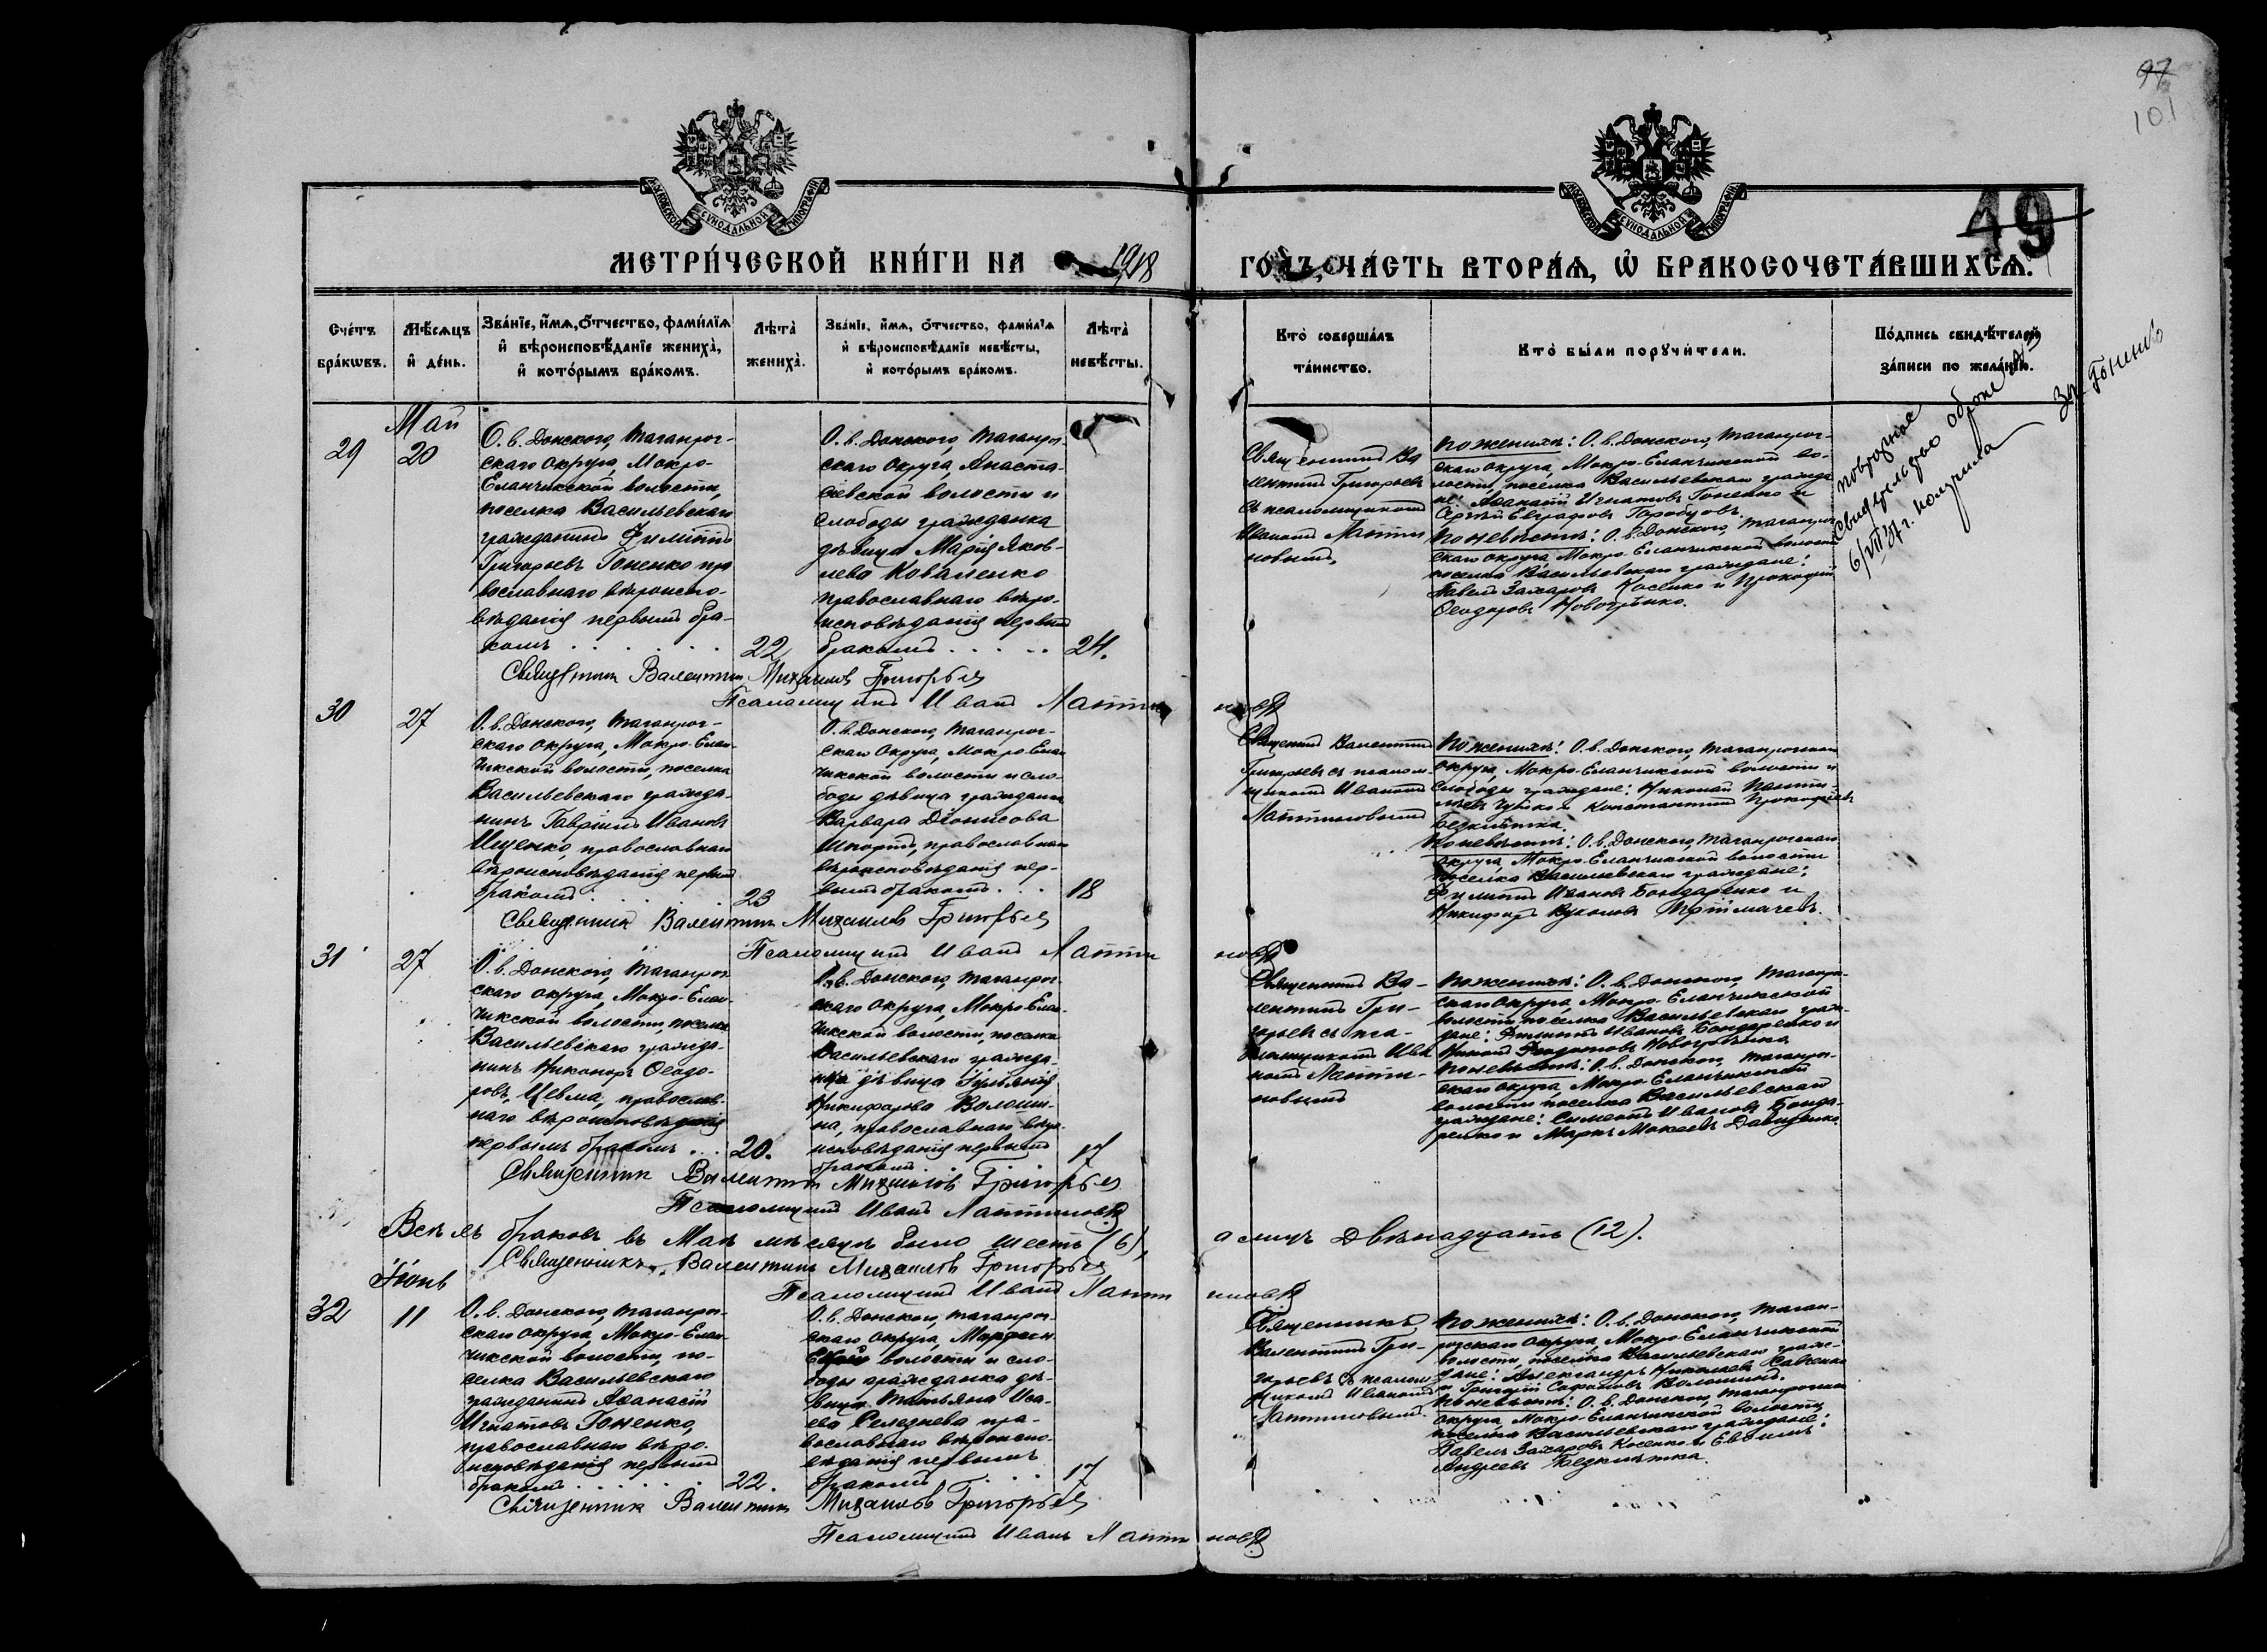 97
101
49
МЕТРИ́ЧЕСКОЙ КНИ́ГИ НА 1918
ГО́ДЪ, ЧА́СТЬ ВТОРА́Я, Ѡ҆ БРАКОСОЧЕТА́ВШИХСЯ.
Сче́тъ бра́кѡвъ.
Мѣ́сяцъ и҆ де́нь.
Зва́нїе, и҆́мя, ѻ҆́тчество, фами́лїя и҆ вѣроисповѣ́данїе жениха̀, и҆ кото́рымъ бра́комъ.
Лѣта̀ жениха̀.
Зва́нїе, и҆́мя, ѻ҆́тчество, фами́лїя и҆ вѣроисповѣ́данїе невѣ́сты, и҆ кото́рымъ бра́комъ.
Лѣта̀ невѣ́сты.
Кто̀ соверша́лъ та́инство.
Кто̀ бы́ли порꙋчи́тели.
По́дпись свидѣ́телей за́писи по жела́нїю.
Май
29
20
О. в. Донского, Таганрог-
скаго округа, Мокро-
Еланчикской волости,
поселка Васильевскаго
гражданинъ Филиппъ
Григорьевъ Гоненко пра
вославнаго вѣроиспо-
вѣданія первымъ бра-
комъ
22
О. в. Донского, Таганрог-
скаго округа, Анаста-
сіевской волости и
слободы гражданка
дѣвица Марія Яков-
лева Коваленко
православнаго вѣро-
исповѣданія первымъ
бракомъ
24.
Священникъ Ва
лентинъ Григорьевъ
съ псаломщикомъ
Иваномъ Лаппи
новымъ.
По женихѣ: О. в. Донского, Таганрог-
скаго округа, Мокро-Еланчикской во-
лости, поселка Васильевскаго гражда
не: Аѳанасій Игнатовъ Гоненко и
Сергѣй Евграфовъ Горобцовъ.
По невѣстѣ: О. в. Донского, Таганрог-
скаго округа, Мокро-Еланчикской волости
поселка Васильевскаго граждане:
Павелъ Захаровъ Косенко и Прокофій
Ѳеодоровъ Новогребенко.
повторное
свидетельство о браке
6/VII 37 г. получила
Гоненко
Священник Валентин Михаилов Григорьев
Псаломщикъ Иванъ Лаппиновъ
30
27
О. в. Донского, Таганрог-
скаго округа, Мокро-Елан-
чикской волости, поселка
Васильевскаго гражда-
нинъ Гавріилъ Ивановъ
Ищенко, православнаго
вѣроисповѣданія первымъ
бракомъ
23
О. в. Донского, Таганрог-
скаго округа, Мокро-Елан
чикской волости и сло-
боды дѣвица гражданка
Варвара Діонисова
Шпортъ, православнаго
вѣроисповѣданія пер-
вымъ бракомъ
18
Священникъ Валентинъ
Григорьевъ съ псалом-
щикомъ Иваномъ
Лаппиновымъ
По женихѣ: О. в. Донского, Таганрогскаго
округа, Мокро-Еланчикской волости и
слободы граждане: Николай
Константинъ Прокофіевъ
По невѣстѣ: О. в. Донского, Таганрогскаго
округа, Мокро-Еланчикской волости
поселка Васильевскаго граждане:
Филиппъ Ивановъ Бондаренко и
Никифоръ
Священник Валентин Михаилов Григорьев
Псаломщикъ Иванъ Лаппиновъ
31
27
О. в. Донского, Таганрог-
скаго округа, Мокро-Елан-
чикской волости, поселка
Васильевскаго гражда-
нинъ Никаноръ Ѳеодо-
ровъ Цевма, православ-
наго вѣроисповѣданія
первымъ бракомъ
20.
О. в. Донского, Таганрог-
скаго округа, Мокро-Елан-
чикской волости, поселка
Васильевскаго гражда-
нка дѣвица Іульянія
Никифорова Волоши-
на, православнаго вѣро-
исповѣданія первымъ
бракомъ
17
Священникъ Ва-
лентинъ Гри-
горьевъ съ пса-
ломщикомъ Ива
номъ Лаппи-
новымъ
По женихѣ: О. в. Донского, Таганрог-
скаго округа, Мокро-Еланчикской
волости поселка Васильевскаго граж-
дане: Филиппъ Ивановъ Бондаренко и
По невѣстѣ: О. в. Донского, Таганрог-
скаго округа, Мокро-Еланчикской
волости поселка Васильевскаго
граждане: Симеонъ Ивановъ Бонда-
ренко и Маркъ Мокеевъ Давиденко.
Священник Валентин Михаилов Григорьев
Псаломщикъ Иванъ Лаппиновъ
Всѣхъ браковъ въ Маѣ мѣсяцѣ было шесть (6), а лицъ двѣнадцать (12).
Священникъ Валентинъ Михаилов Григорьев
Псаломщикъ Иванъ Лаппиновъ
Іюнь
32
11
О. в. Донского, Таганрог-
скаго округа, Мокро-Елан-
чикской волости, по-
селка Васильевскаго
гражданинъ Аѳанасій
Игнатовъ Гоненко,
православнаго вѣро-
исповѣданія первымъ
бракомъ
22.
О. в. Донского, Таганрог-
скаго округа,
волости и сло-
боды гражданка дѣ-
вица Татьяна Иса-
ева Селезнева пра-
вославнаго вѣроиспо-
вѣданія первымъ
бракомъ
17
Священникъ
Валентинъ Гри-
горьевъ съ псалом
щикомъ Иваномъ
Лаппиновымъ.
По женихѣ: О. в. Донского, Таган-
рогскаго округа, Мокро-Еланчикской
волости, поселка Васильевскаго граж-
дане: Александръ Николаевъ Савченко
и Григорій Софоновъ Волошинъ.
По невѣстѣ: О. в. Донского, Таганрогскаго
округа, Мокро-Еланчикской волости,
поселка Васильевскаго граждане:
Павелъ Захаровъ Косенко и Евѳимъ
Андреевъ
Священник Валентин Михаилов Григорьев
Псаломщикъ Иванъ Лаппиновъ